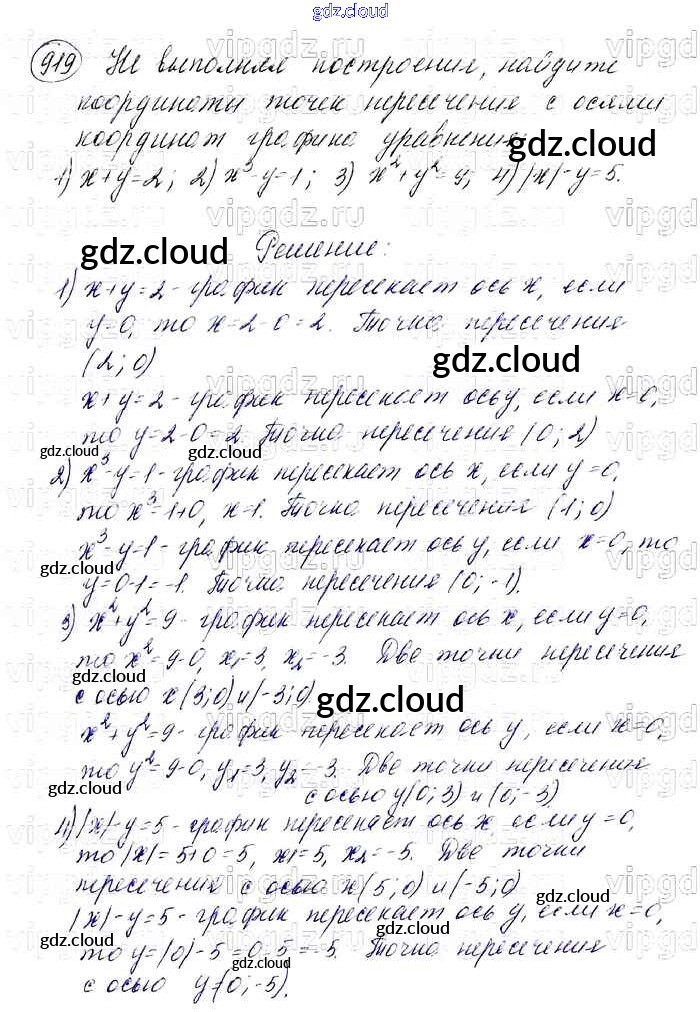 gdz.cloud
919 Не выполняя построения, найдите
координаты точек пересечения с осями
координат графика уравнения:
gdz.cloud
1) x+y=2; 2) x³-y=1; 3) x²+y²=9; 4) |x|-y=5.
gdz.cloud Решение:
1) x+y=2 - график пересекает ось x, если
y=0, то x=2-0=2. Точка пересечения
(2; 0) gdz.cloud
x+y=2 - график пересекает ось y, если x=0,
то y=2-0=2. Точка пересечения (0; 2)
gdz.cloud gdz.cloud
2) x³-y=1 - график пересекает ось x, если y=0,
то x³=1+0, x=1. Точка пересечения (1; 0)
x³-y=1 - график пересекает ось y, если x=0, то
gdz.cloud gdz.cloud
y=0-1=-1. Точка пересечения (0; -1).
3) x²+y²=9 - график пересекает ось x, если y=0,
то x²=9-0, x₁=3, x₂=-3. Две точки пересечения
с осью x (3; 0) и (-3; 0). gdz.cloud
x²+y²=9 - график пересекает ось y, если x=0,
то y²=9-0, y₁=3, y₂=-3. Две точки пересечения
gdz.cloud с осью y (0; 3) и (0; -3)
gdz.cloud
4) |x|-y=5 - график пересекает ось x, если y=0,
то |x|=5+0=5, x₁=5, x₂=-5. Две точки
пересечения с осью x (5; 0) и (-5; 0)
gdz.cloud
|x|-y=5 - график пересекает ось y, если x=0,
gdz.cloud
то y=|0|-5=0-5=-5. Точка пересечения
gdz.cloud
с осью y (0; -5).